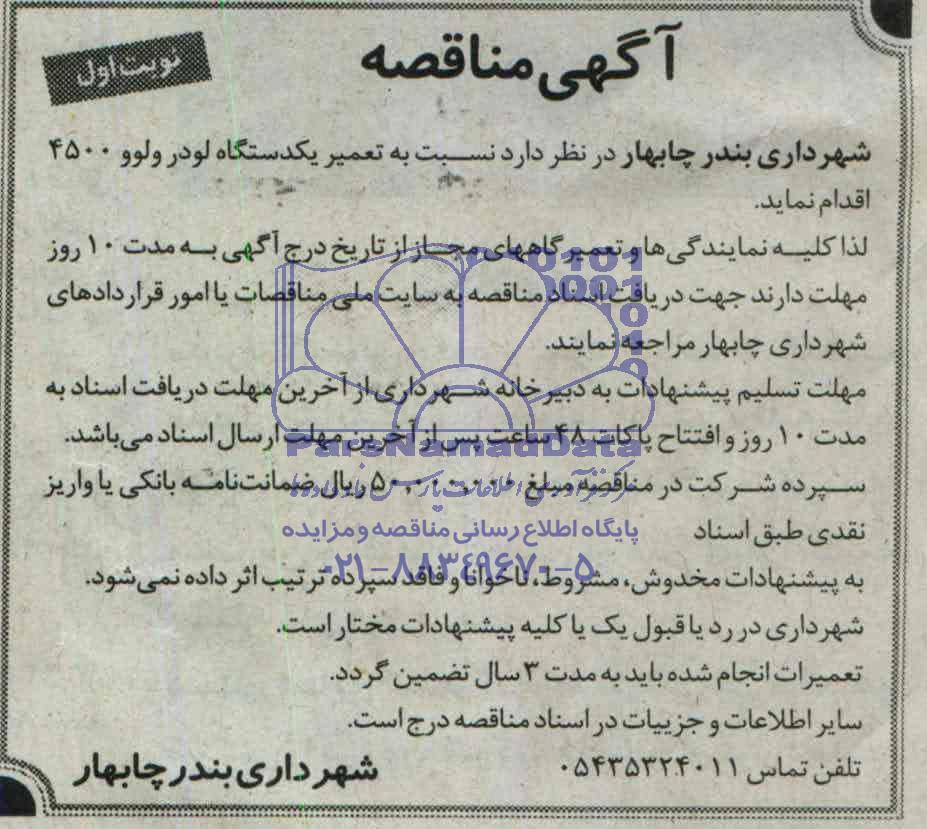 آگهی مناقصه
نوبت اول
شهرداری بندر چابهار در نظر دارد نسبت به تعمیر یکدستگاه لودر ولوو ۴۵۰۰
اقدام نماید.
لذا کلیه نمایندگی ها و تعمیرگاههای مجاز از تاریخ درج آگهی به مدت ۱۰ روز
مهلت دارند جهت دریافت اسناد مناقصه به سایت ملی مناقصات یا امور قراردادهای
شهرداری چابهار مراجعه نمایند.
مهلت تسلیم پیشنهادات به دبیرخانه شهرداری از آخرین مهلت دریافت اسناد به
مدت ۱۰ روز و افتتاح پاکات ۴۸ ساعت پس از آخرین مهلت ارسال اسناد می‌باشد.
ParsNamadData
سپرده شرکت در مناقصه مبلغ ۵۰,۰۰۰,۰۰۰ ریال ضمانت‌نامه بانکی یا واریز
نقدی طبق اسناد
پایگاه اطلاع رسانی مناقصه و مزایده
به پیشنهادات مخدوش، مشروط، ناخوانا و فاقد سپرده ترتیب اثر داده نمی‌شود.
۰۲۱-۸۸۳۴۹۶۷۰-۵
شهرداری در رد یا قبول یک یا کلیه پیشنهادات مختار است.
تعمیرات انجام شده باید به مدت ۳ سال تضمین گردد.
سایر اطلاعات و جزییات در اسناد مناقصه درج است.
تلفن تماس ۰۵۴۳۵۳۲۴۰۱۱
شهرداری بندر چابهار